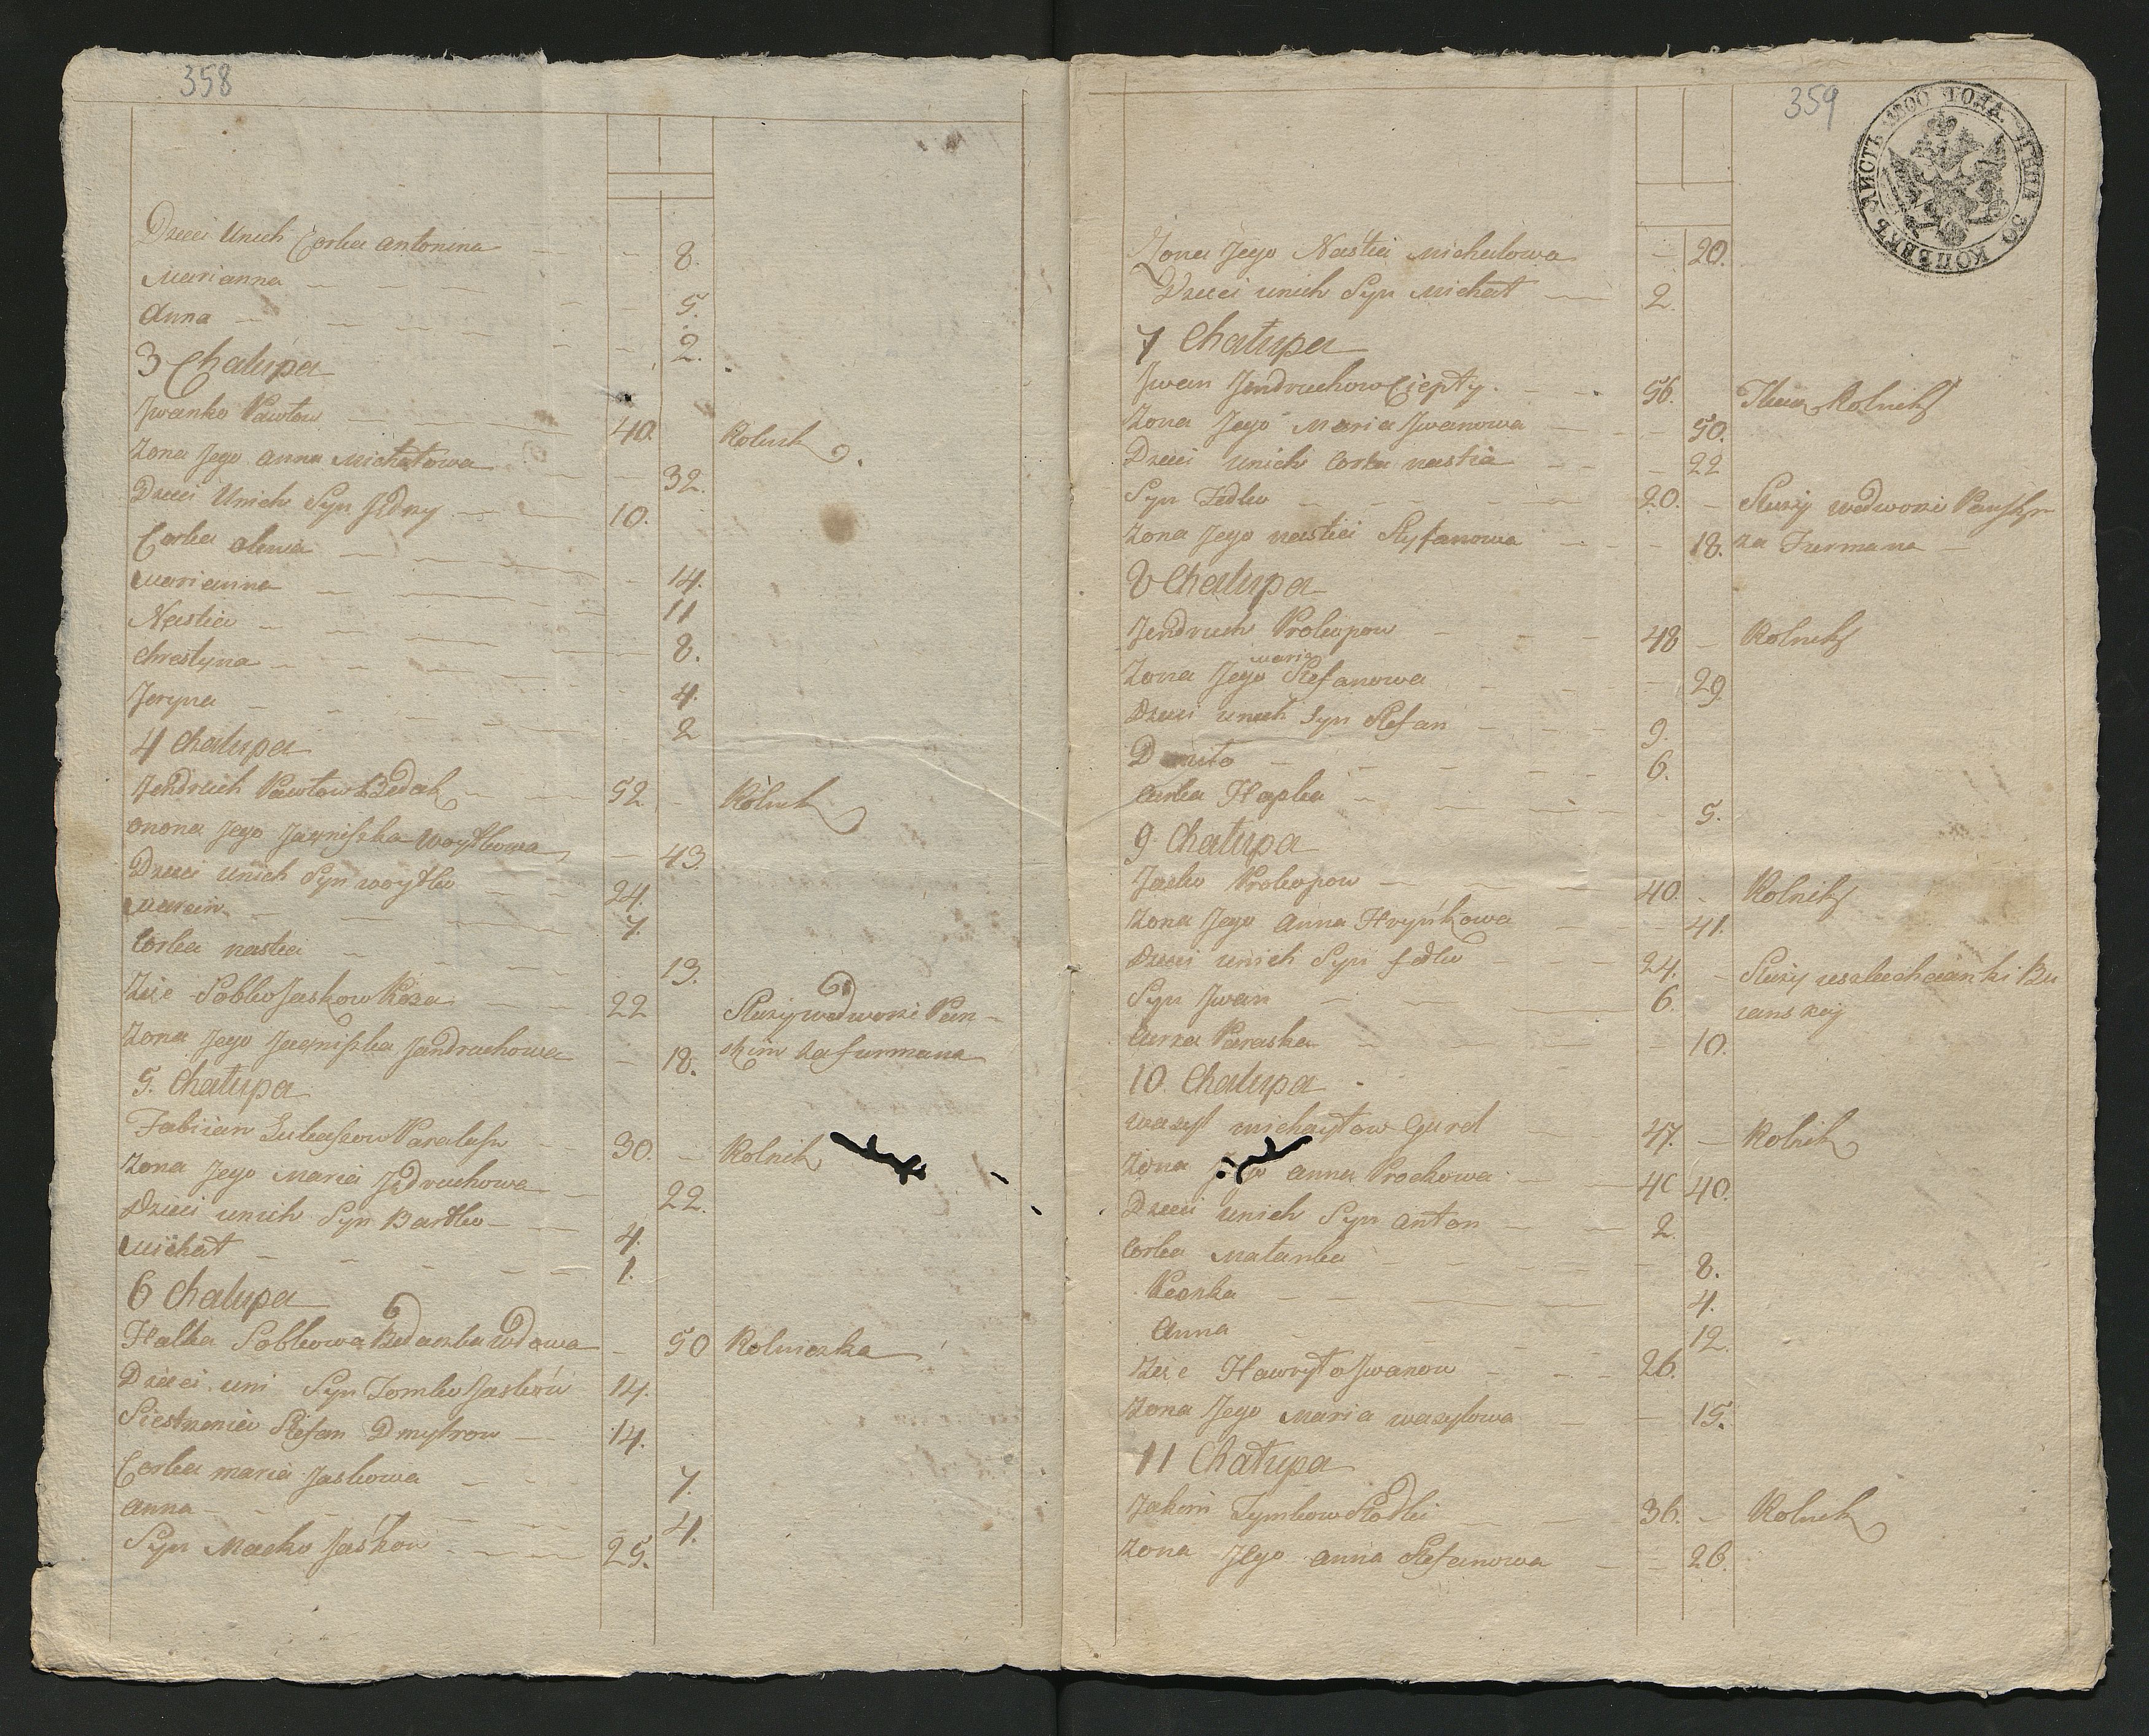 358
Dzieci Unich Corka Antonina - - 8.
Marianna - - - 5.
Anna - - - 2.
3 Chałupa
Jwanko Pawłow - 40. Rolnik
Zona Jego Anna Michałowa - 32.
Dzieci Unich Syn Jędrzy - 10.
Corka Olena - 14.
Marianna - 11
Nastia - 8.
Chrestyna - 4.
Jeryna - 2
4 Chałupa
Jendruch Pawłow Bedak - 52 - Rolnik
Zona Jego Jagniszka Woytkowa - 43.
Dzieci unich Syn Woytko - 24.
Marcin - 7.
Corka nastia - 13.
Zięć Sobko Jaskow Koza - 22 Służy wedworze Pan-
Zona Jego Jagniszka Jandruchowa - 18. skim za furmana
5. Chałupa
Fabiian Łukaszow - 30. - Rolnik
Zona Jego Maria Jędruchowa - 22.
Dzieci unich Syn Bartko - 4.
Michał - 1.
6 Chałupa
Halka Sobkowa Bedaczka wdowa - 50 Rolniczka
Dzieci uni Syn Tomko Jaskow 14.
Siestrzenia Stefan Dmytrow - 14.
Corka maria Jaskowa - 7.
Anna - 4.
Syn Macko Jaskow - 25.
359
ЛИСТЪ 1800 ГОДА ЦѢНА 30 КОПѢЕКЪ
Zona Jego Nastia Michałowa - 20.
Dzieci unich Syn Michał - 2.
7 Chałupa
Jwan Jendruchow Ciepły - 56. Rolnik
Zona Jego Maria Jwanowa - 50.
Dzieci unich Corka nastia - 22
Syn Fedko - 20. - Służy wedworze Pańskim
Zona Jego nastia Styfanowa - 18. za Furmana -
8 Chałupa
Jendruch Prokopow - 48 - Rolnik
Zona Jego maria Stefanowa - 29.
Dzieci unich Syn Stefan - 9.
- 6.
Curka Hapka - 5.
9 Chałupa
Jacko Prokopow - 40. - Rolnik
Zona Jego Anna Hryńkowa - 41.
Dzieci unich Syn fedko - 24. - Służy uszlachcianki Bu
Syn Jwan - 6. ranskiy
Curka Paraska - 10.
10. Chałupa
Wasyl michayłow Gurd - 47. - Rolnik
Zona Jego anna Prockowa - 40 40.
Dzieci unich Syn Anton - 2.
Corka Małanka - 8.
- 4.
Anna - 12.
Zięć Hawryło Jwanow - 26.
Zona Jego Maria wasylowa - 15.
11 Chałupa
Jakim Tymkow Słodki - 36. - Rolnik
Zona Jego Anna Stefanowa - 26.